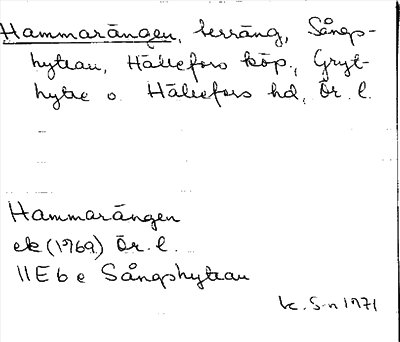 Hammarängen, terräng, Sångs-
hyttan, Hällefors köp., Gryt-
hytte o. Hällefors hd, Ör. l.
Hammarängen
ek (1969) Ör. l.
11E 6 e Sångshyttan
k. S-n 1971